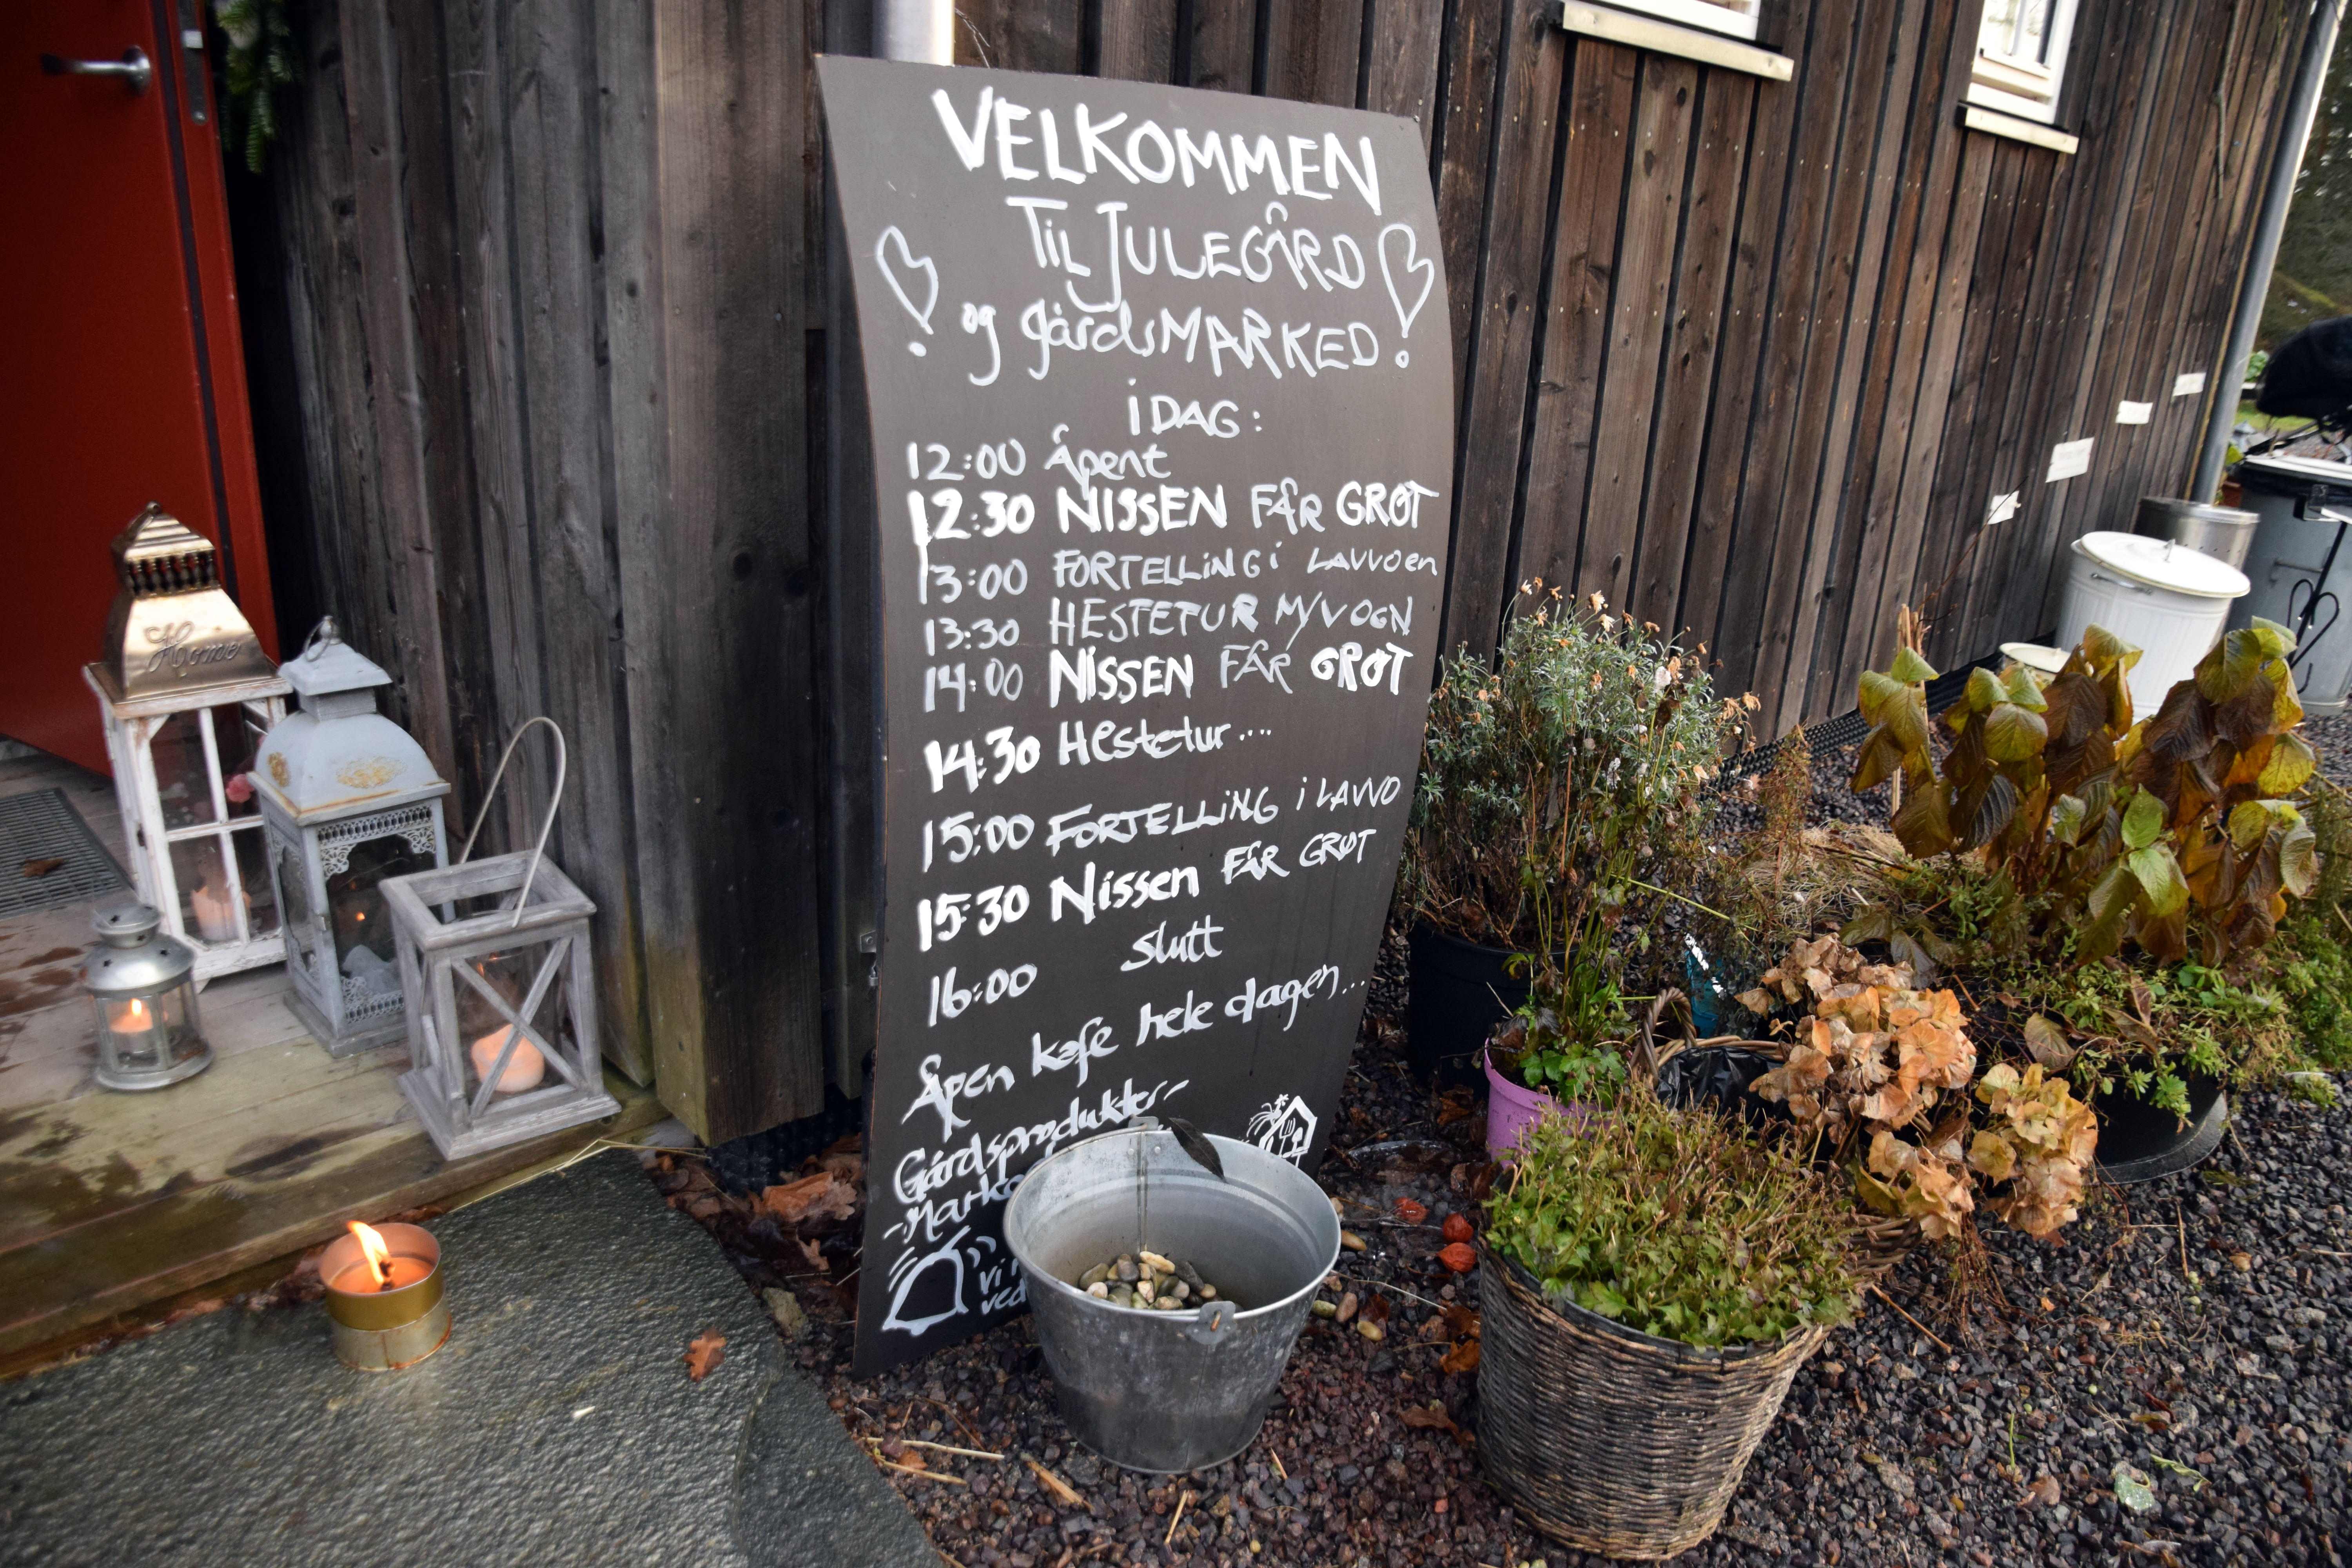 Home
VELKOMMEN
TiL JULEGÅRD
og gårdsMARKED!
i DAG:
12:00 Åpent
12:30 NISSEN FÅR GRØT
13:00 FORTELLiNG i LAVVOen
13:30 HESTETUR M/VOGN
14:00 NiSSEN FÅR GRØT
14:30 Hestetur....
15:00 FORTELLiNG i LAVVO
15:30 Nissen FÅR GRØT
16:00 Slutt
Åpen kafe hele dagen...
Gårdsprodukter-
vi